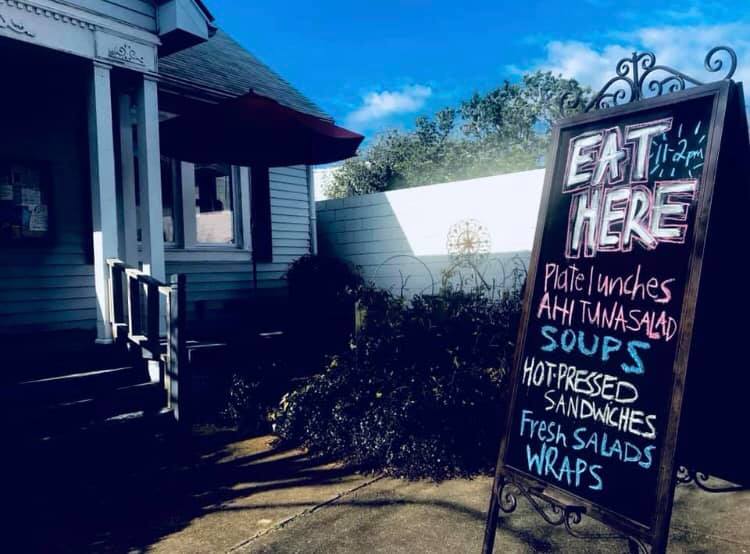 EAT 11-2pm
HERE
Plate lunches
AHI TUNA SALAD
SOUPS
HOT-PRESSED
SANDWICHES
Fresh SALADS
WRAPS